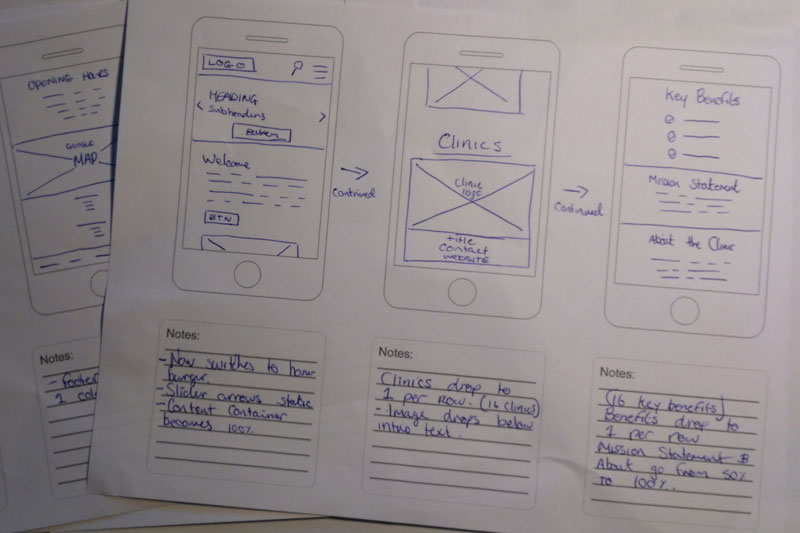 OPENING HOURS
GOOGLE
MAP
Notes:
- Footer
1 col
LOGO
HEADING
Subheading
Welcome
BTN
Continued
Notes:
- Nav switches to ham-
burger.
- Slider arrows static
- Content Container
becomes 100%
Clinics
Clinic
logo
title
Contact
WEBSITE
Continued
Notes:
Clinics drop to
1 per row. (16 clinics)
- Image drops below
intro text.
Key Benefits
Mission Statement
About the Clinic
Notes:
(16 key benefits)
Benefits drop to
1 per row
Mission Statement &
About go from 50%
to 100%.